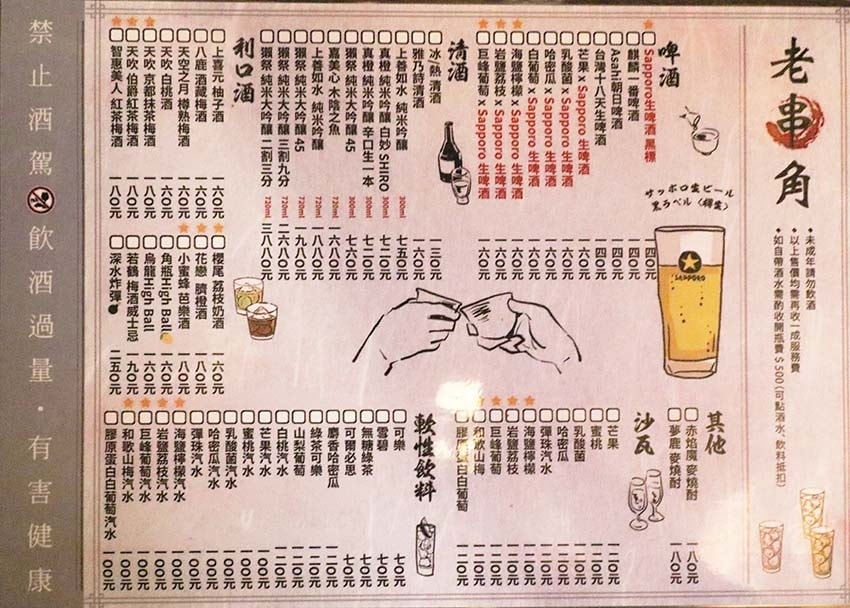 老串角
◆未成年請勿飲酒
◆以上售價均需再收一成服務費
◆如自帶酒水需酌收開瓶費$500(可點酒水、飲料抵扣)
啤酒
Sapporo生啤酒 黑標 一四〇元
麒麟一番啤酒 一四〇元
Asahi朝日啤酒 一四〇元
台灣十八天生啤酒 一四〇元
芒果 x Sapporo 生啤酒 一六〇元
乳酸菌 x Sapporo 生啤酒 一六〇元
哈密瓜 x Sapporo 生啤酒 一六〇元
白葡萄 x Sapporo 生啤酒 一六〇元
海鹽檸檬 x Sapporo 生啤酒 一六〇元
岩鹽荔枝 x Sapporo 生啤酒 一六〇元
巨峰葡萄 x Sapporo 生啤酒 一六〇元
サッポロ生ビール
黒ラベル
SAPPORO
清酒
冰/熱 清酒 一三〇元
雅乃詩清酒 一六〇元
上善如水 純米吟釀 300ml 七五〇元
真橙 純米吟釀 白妙 SHIRO 300ml 七二〇元
真橙 純米吟釀 辛口生一本 300ml 七二〇元
獺祭 純米大吟釀 45 300ml 七六〇元
嘉美心 木陰之魚 720ml 一六八〇元
上善如水 純米吟釀 720ml 一八八〇元
獺祭 純米大吟釀 45 720ml 一九八〇元
獺祭 純米大吟釀 三割九分 720ml 二六八〇元
獺祭 純米大吟釀 二割三分 720ml 三八八〇元
利口酒
上喜元 柚子酒 一六〇元
八鹿 酒藏梅酒 一六〇元
天空之月 樽熟梅酒 一六〇元
天吹 白桃酒 一六〇元
天吹 京都抹茶梅酒 一八〇元
天吹 伯爵紅茶梅酒 一八〇元
智惠美人 紅茶梅酒 一八〇元
櫻尾 荔枝奶酒 一六〇元
花戀 臍橙酒 一八〇元
小蜜蜂 芭樂酒 一八〇元
角瓶High Ball 一六〇元
烏龍High Ball 一六〇元
若鶴 梅酒威士忌 一九〇元
深水炸彈 二五〇元
其他
赤焰魔 麥燒酎 一八〇元
夢鹿 麥燒酎 一八〇元
沙瓦
芒果 一二〇元
蜜桃 一二〇元
乳酸菌 一二〇元
哈密瓜 一二〇元
彈珠汽水 一二〇元
海鹽檸檬 一二〇元
岩鹽荔枝 一二〇元
巨峰葡萄 一二〇元
和歌山梅 一二〇元
膠原蛋白白葡萄 一二〇元
軟性飲料
可樂 七〇元
雪碧 七〇元
無糖綠茶 七〇元
可爾必思 七〇元
麝香哈密瓜 一一〇元
綠茶可樂 一一〇元
山梨葡萄 一一〇元
白桃汽水 一一〇元
芒果汽水 一〇〇元
蜜桃汽水 一〇〇元
乳酸菌汽水 一〇〇元
哈密瓜汽水 一〇〇元
彈珠汽水 一〇〇元
海鹽檸檬汽水 一〇〇元
岩鹽荔枝汽水 一〇〇元
巨峰葡萄汽水 一〇〇元
和歌山梅汽水 一〇〇元
膠原蛋白白葡萄汽水 一〇〇元
禁止酒駕 飲酒過量・有害健康